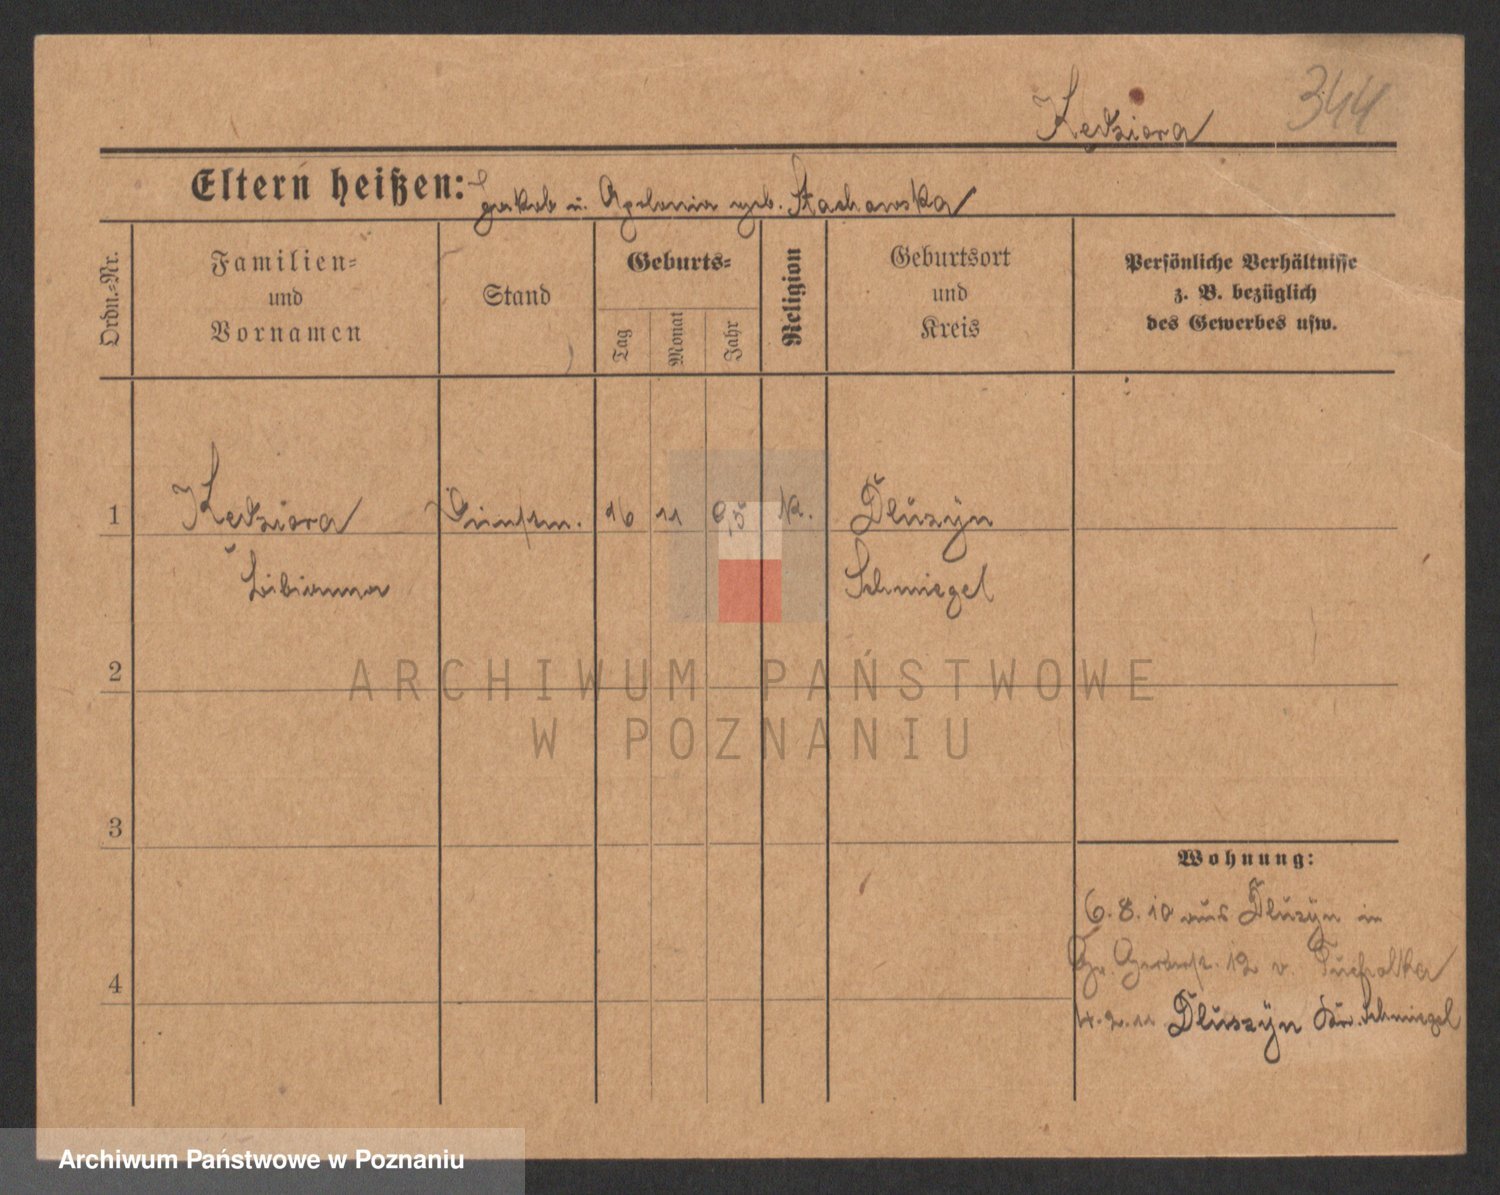 344
Kędziora
Eltern heißen: Jakob u. Apolonia geb. Stachowska
Ordn.-Nr.
Familien-
und
Vornamen
Stand
Geburts-
Tag
Monat
Jahr
Religion
Geburtsort
und
Kreis
Persönliche Verhältnisse
z. B. bezüglich
des Gewerbes usw.
1 Kędziora 16 11 K. Dluzyn
Bibianna Schmiegel
2
3
4
Wohnung:
6.8.10 aus Dluzyn in
12 v.
4.2.11 Dluszyn Kr. Schmiegel
ARCHIWUM PAŃSTWOWE
W POZNANIU
Archiwum Państwowe w Poznaniu